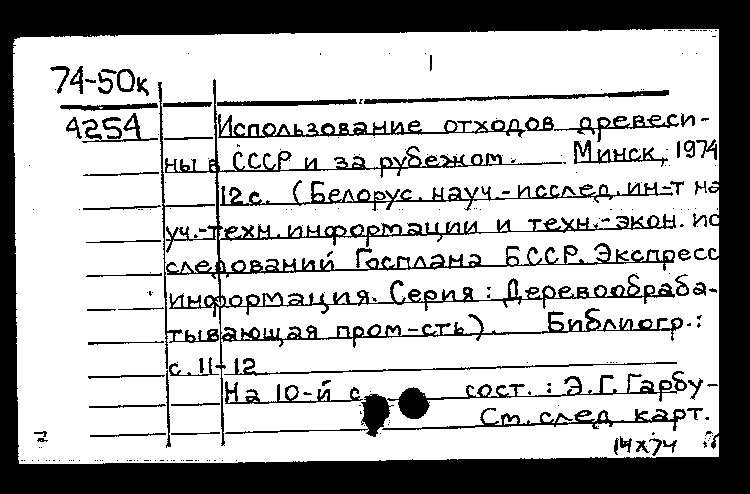 74-50к
4254 Использование отходов древеси-
ны в СССР и за рубежом. Минск, 1974
12с. (Белорус. науч.-исслед. ин-т на
уч.-техн. информации и техн.-экон. ис
следований Госплана БССР. Экспресс
информация. Серия: Деревообраба-
тывающая пром-сть). Библиогр.:
с. 11-12
На 10-й с. сост.: Э.Г. Гарбу-
См. след карт.
14х74